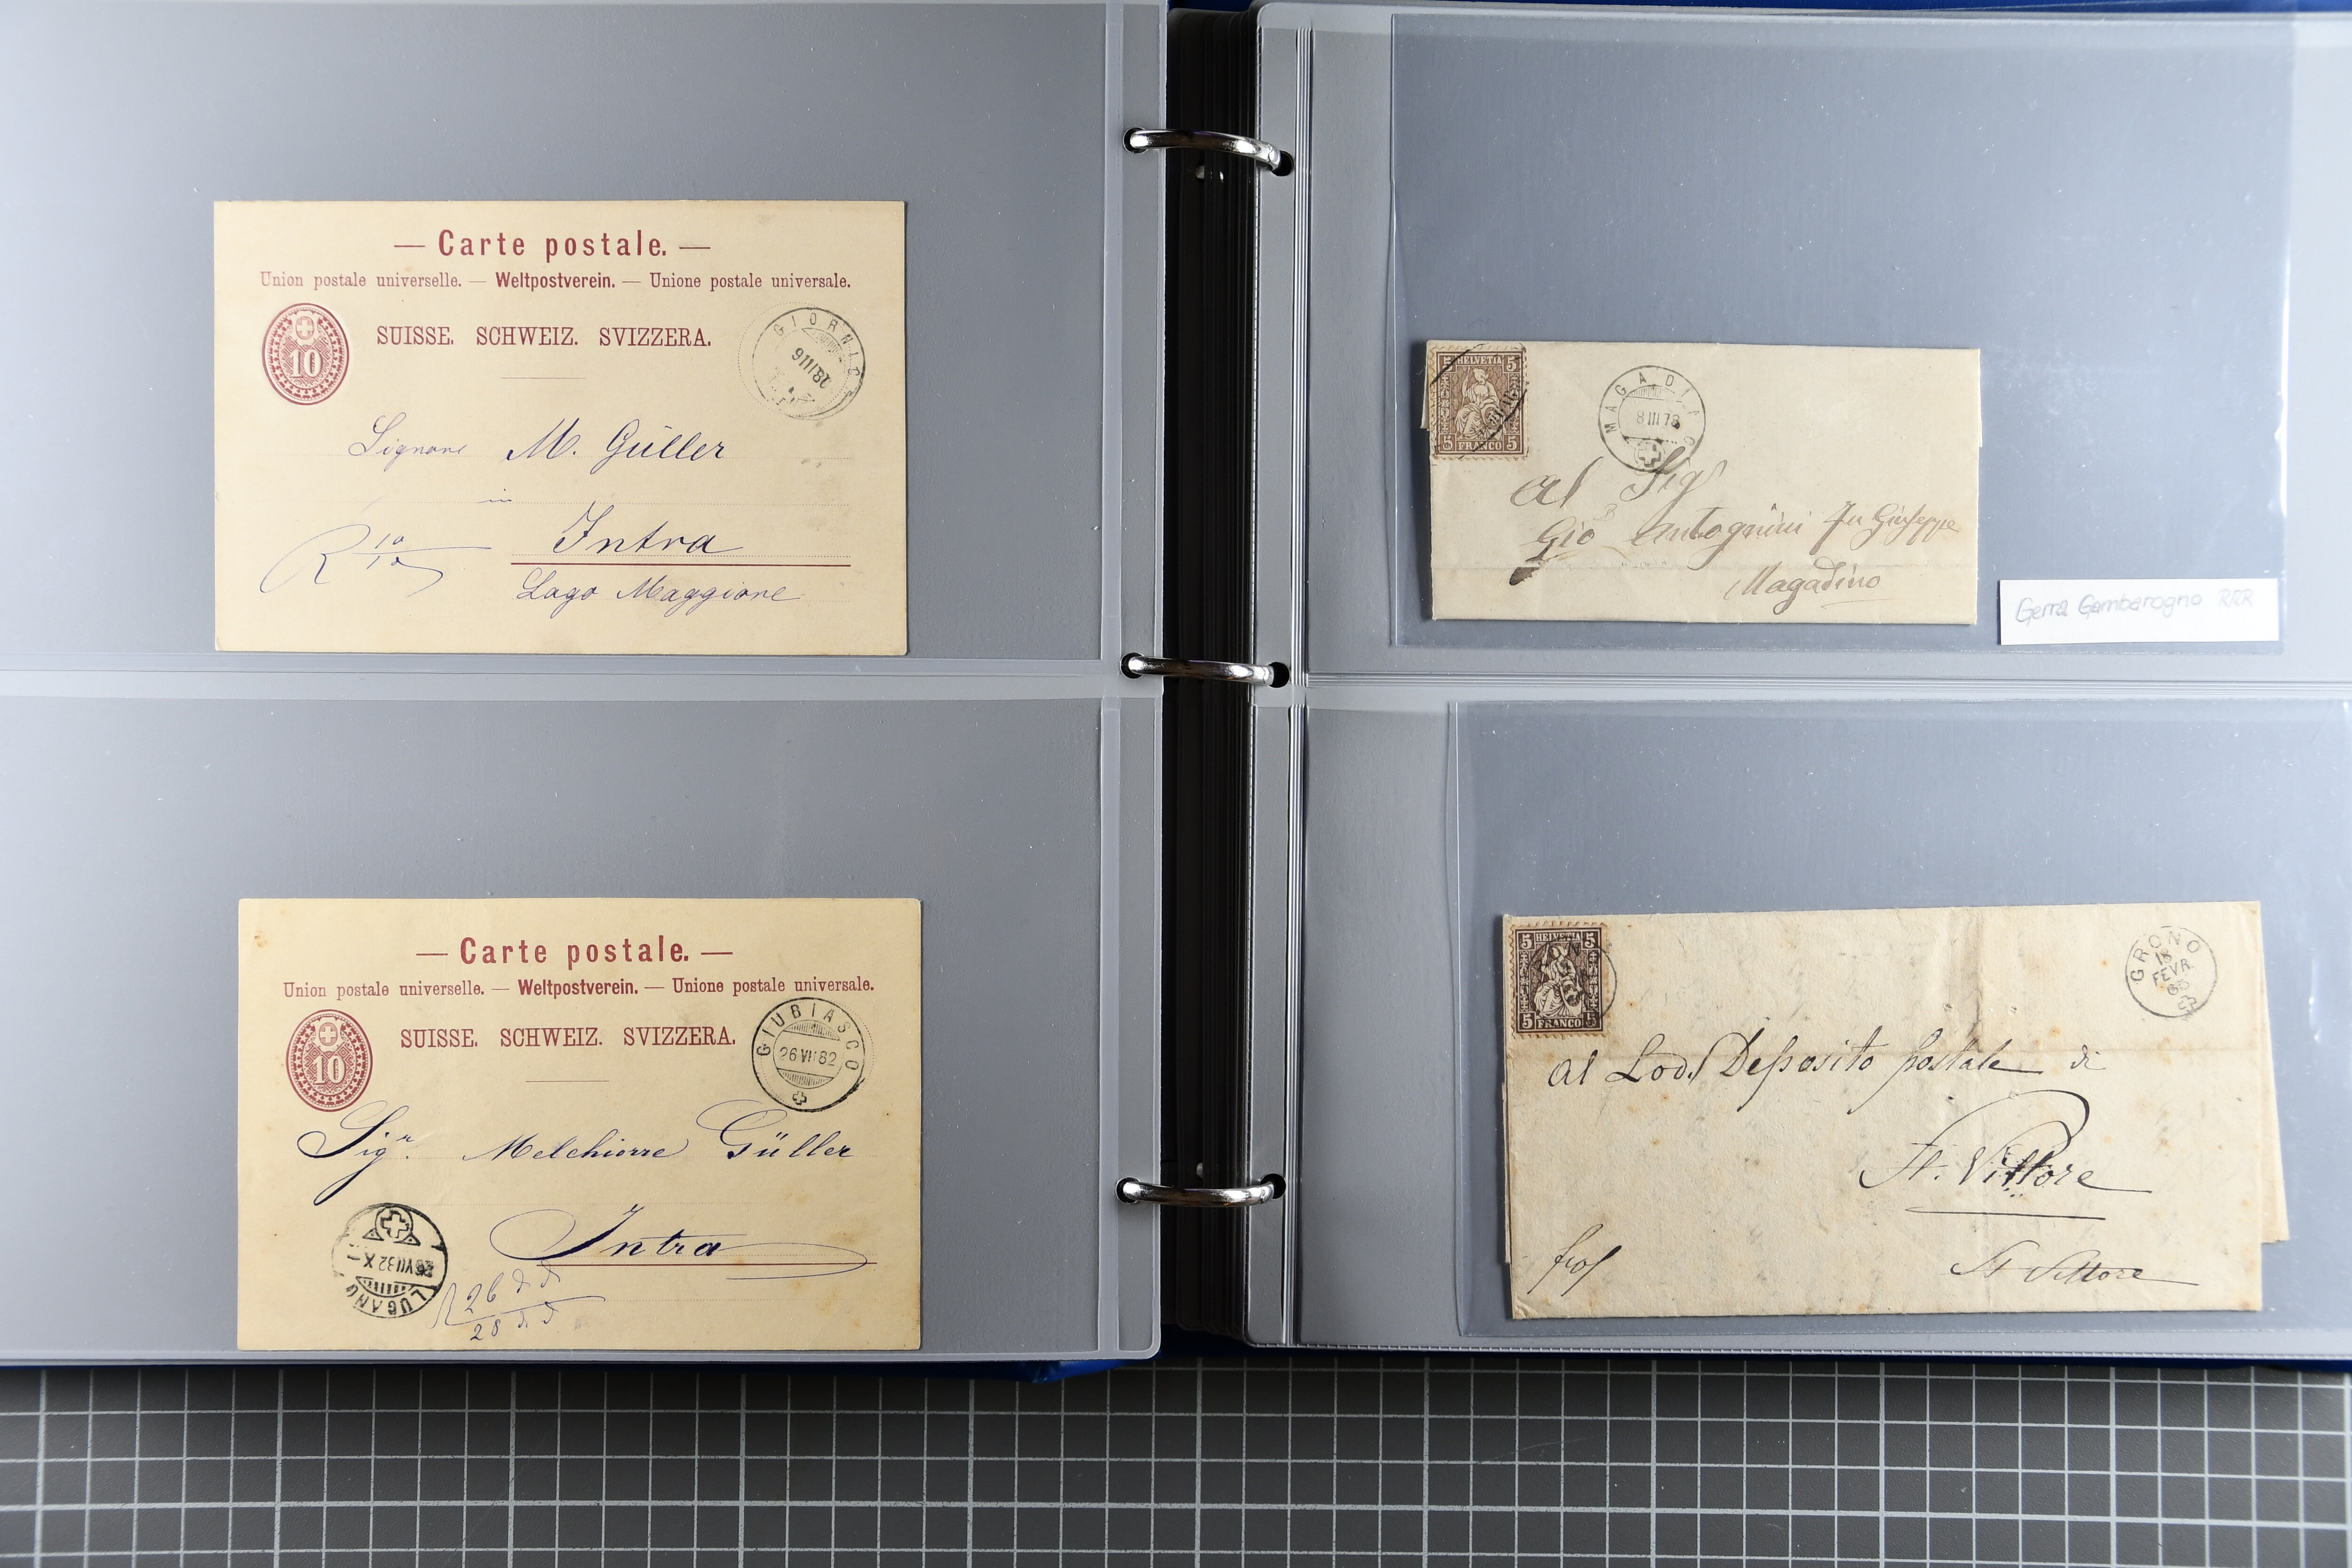 — Carte postale. —
Union postale universelle. — Weltpostverein. — Unione postale universale.
SUISSE. SCHWEIZ. SVIZZERA.
10
GIORNICO
Signore M. Güller
in
Intra
R 10/10
Lago Maggiore
— Carte postale. —
Union postale universelle. — Weltpostverein. — Unione postale universale.
SUISSE. SCHWEIZ. SVIZZERA.
10
GIUBIASCO
26 VII 82
Sigr. Melchiorre Güller
Intra
LUGANO
26/28
5 HELVETIA 5
5 FRANCO 5
MAGADINO
8 III 78
Al Sigr
Gio Antognini fu Giuseppe
Magadino
Gerra Gambarogno RRR
5 HELVETIA 5
5 FRANCO 5
GRONO
18
FEVR
Al Lod. Deposito postale di
St. Vittore
St Vittore